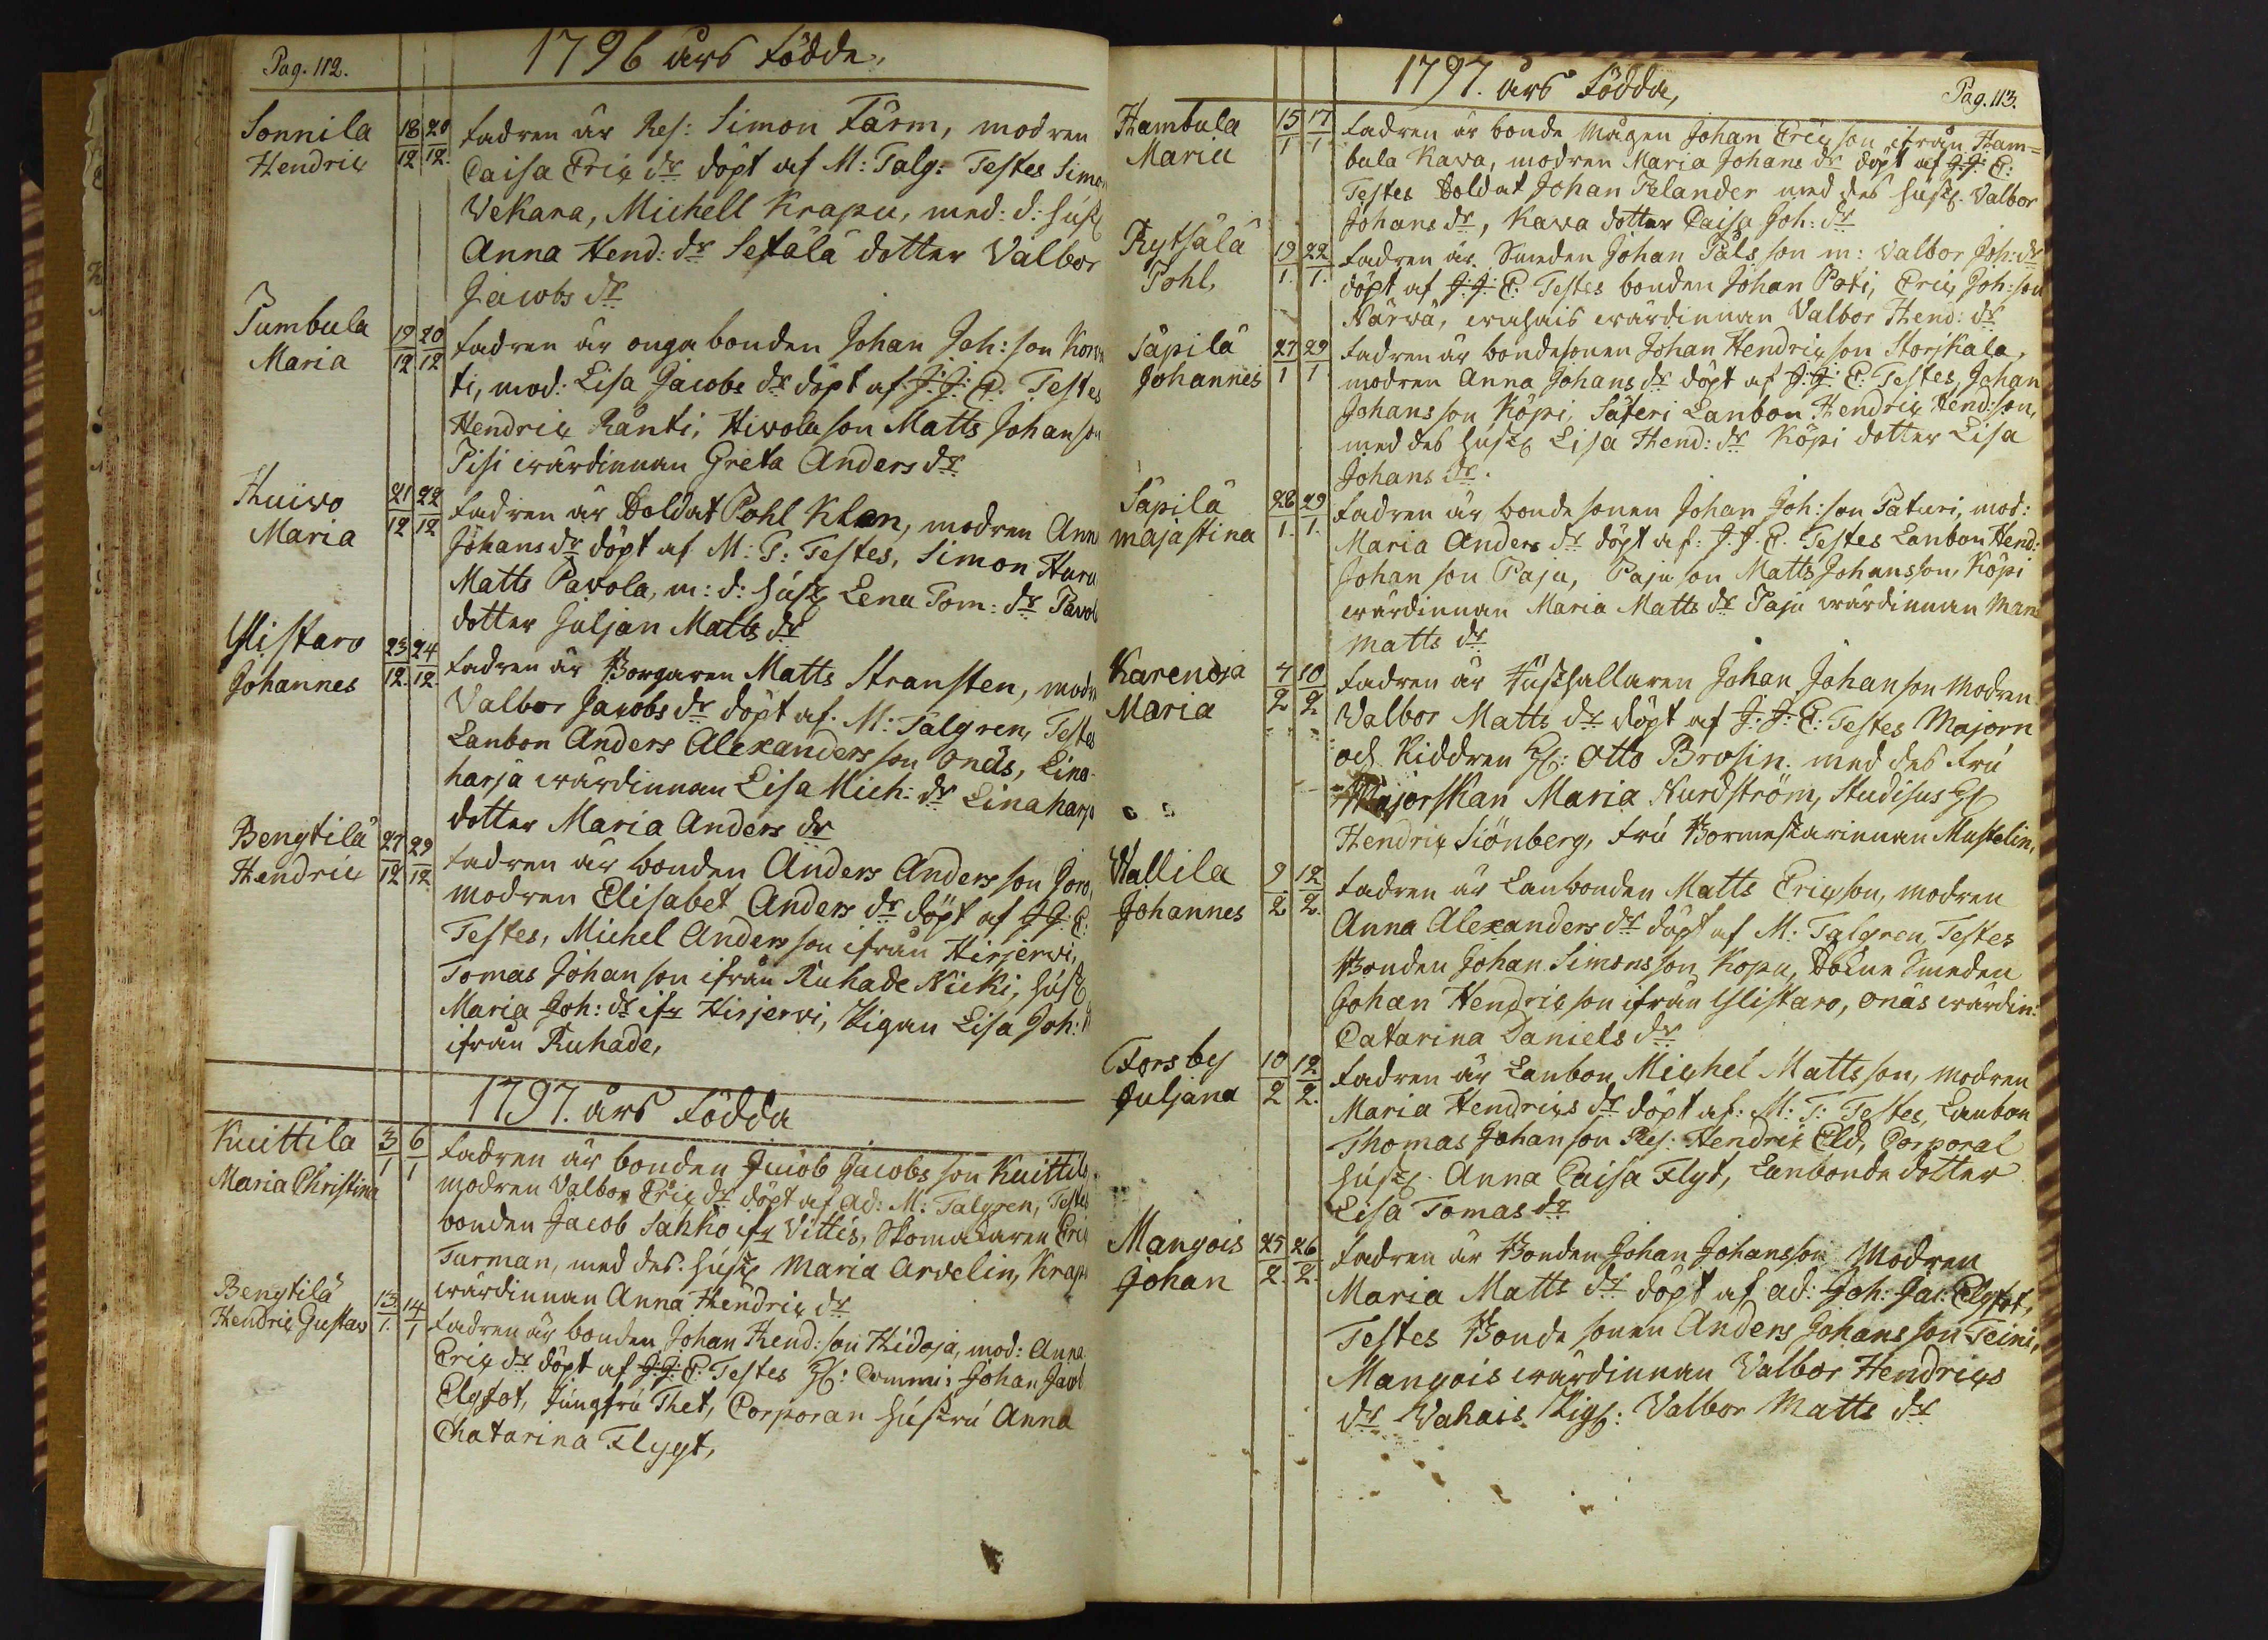 Pag. 112.
1796 års Födde,
Sonnila 18/12 20/12. Fadren är Res: Simon Färm, modren
Hendric Caisa Eric dr döpt af M: Talg: Testes Simon
Wekara, Michell Krapu, med: d: hust
Anna Hend: dr Setälä dotter Valbor
Jacobs dr
Tumbula 19/12 20/12 Fadren är onga bonden Johan Joh: son
Maria ti, mod: Lisa Jacobs dr döpt af J: J: E: Testes
Hendric Ranti, Hivola son Matts Johan son
Pisi wärdinnan Greta Anders dr
Huivo 21/12 22/12 Fadren är Soldat Pohl Klen, modren Ann
Maria Johans dr döpt af M: T: Testes, Simon
Matts Pavola, m: d: hust Lena Tom: dr Pavol
dotter Juljan Matts dr
Ylistaro 23/12. 24/12. Fadren är Borgaren Matts Stransten, modr
Johannes Valbor Jacobs dr döpt af. M: Talgren, Testes
Lanbon Anders Alexanders son Onäs, Lina
harja wärdinnan Lisa Mich: dr Linaharja
dotter Maria Anders dr
Bengtilä 27/12 29/12 Fadren är bonden Anders Anders son
Hendric modren Elisabet Anders dr döpt af J J: E:
Testes, Michel Anders son ifrån Hirjervi,
Tomas Johan son ifrån Ruhade Nicki, hust
Maria Joh: dr ifr Hirjervi, Pigan Lisa Joh:
ifrån Ruhade,
1797. års Födda
Kuittila 3/1 6/1 Fadren är bonden Jacob Jacobs son Kuittila
Maria Christina modren Valbor Eric dr döpt af ad: M: Talgren, Testes
bonden Jacob Sahko ifr Vittis, Skomakaren Eric
Turman, med des. hust Maria Arvelin, Krapu
wärdinnan Anna Hendric dr
Bengtilä 13/1. 14/1 Fadren är bonden Johan Hend: son Hidoja, mod: Anna
Hendric Gustav Eric dr döpt af J: J: E: Testes H: Commi: Johan Jacob
Elgfot, Jungfru Thet, Corporan hustru Anna
Chatarina Flygt,
1797. års Födda, Pag. 113.
Hambula 15/1 17/1 Fadren är bonde mågen Johan Eric son ifrån Ham=
Maria bula Kava, modren Maria Johans dr döpt af J: J: E:
Testes Soldat Johan Felander med des hust. Valbor
Johans dr, Kava dotter Caisa Joh: dr
Rytsälä 19/1. 22/1. Fadren är. Smeden Johan Påls son m: Valbor Joh: dr
Pohl, döpt af J: J: E: Testes bonden Johan Poti, Eric Joh: son
Närvä, wärdinnan Valbor Hend: dr
Säpilä 27/1 29/1 Fadren är bondesonen Johan Hendric son Storskala,
Johannes modren Anna Johans dr döpt af J: J: E: Testes, Johan
Johans son Köpi, Säteri Lanbon Hendric Hend: son,
med des hust Lisa Hend: dr Köpi dotter Lisa
Johans dr.
Säpilä 28/1. 29/1. Fadren är bonde sonen Johan Joh: son Paturi, mod:
Majastina Maria Anders dr döpt af: J. J. E. Testes Lanbon Hend:
Johan son Paju, Paju son Matts Johansson, Köpi
wärdinnan Maria Matts dr Paju wärdinnan Mari
Matts dr
Karenoja 4/2 10/2 Fadren är Rusthållaren Johan Johan son Modren
Maria Valbor Matts dr döpt af J: J: E: Testes Majorn
och Riddren H: Otto Brosin. med des Fru
Majorskan Maria Nurdström, Studisus H
Hendric Siönberg, Fru Bormestarinnan Mustelin,
Wallila 9/2 12/2. Fadren är Lanbonden Matts Eric son, modren
Johannes Anna Alexanders dr döpt af M: Talgren, Testes
Bonden Johan Simons son Kopu, Sokne Smeden
Johan Hendric son ifrån Ylistaro, Onäs wärdin:
Catarina Daniels dr
Forsby 10/2 12/2. Fadren är Lanbon Michel Matts son, modren
Juljana Maria Hendrics dr döpt af: M: T: Testes, Lanbon
Thomas Johan son Res. Hendric Eld, Corporal
hust. Anna Caisa Flyt, Lanbonde dotter
Lisa Tomas dr
Mangois 25/2. 26/2. Fadren är Bonden Johan Johansson Modren
Johan Maria Matts dr döpt af ad: Joh: Jac: Elgfot,
Testes Bonde sonen Anders Johans son Teini,
Mangois wärdinnan Valbor Hendrics
dr Wahais Pig: Valbor Matts dr